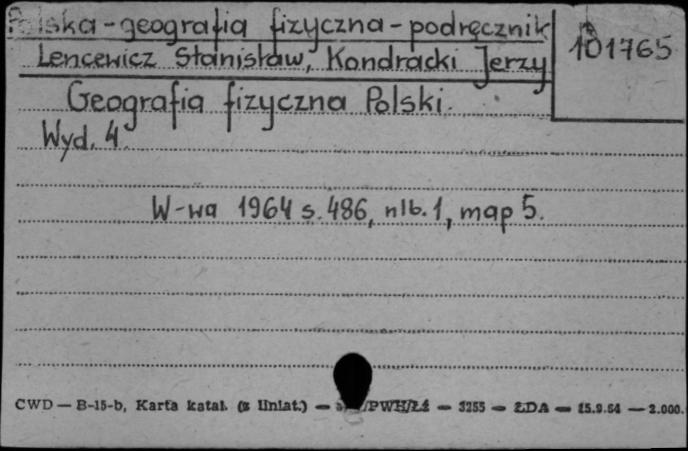 Polska - geografia fizyczna - podręcznik
101765
Lencewicz Stanisław, Kondracki Jerzy
Geografia fizyczna Polski.
Wyd. 4
W-wa 1964 s. 486, nlb. 1, map 5.
CWD — B-15-b, Karta katal. (z liniat.) — /PWH/Łź — 3255 — ŁDA — 15.9.64 — 2.000.